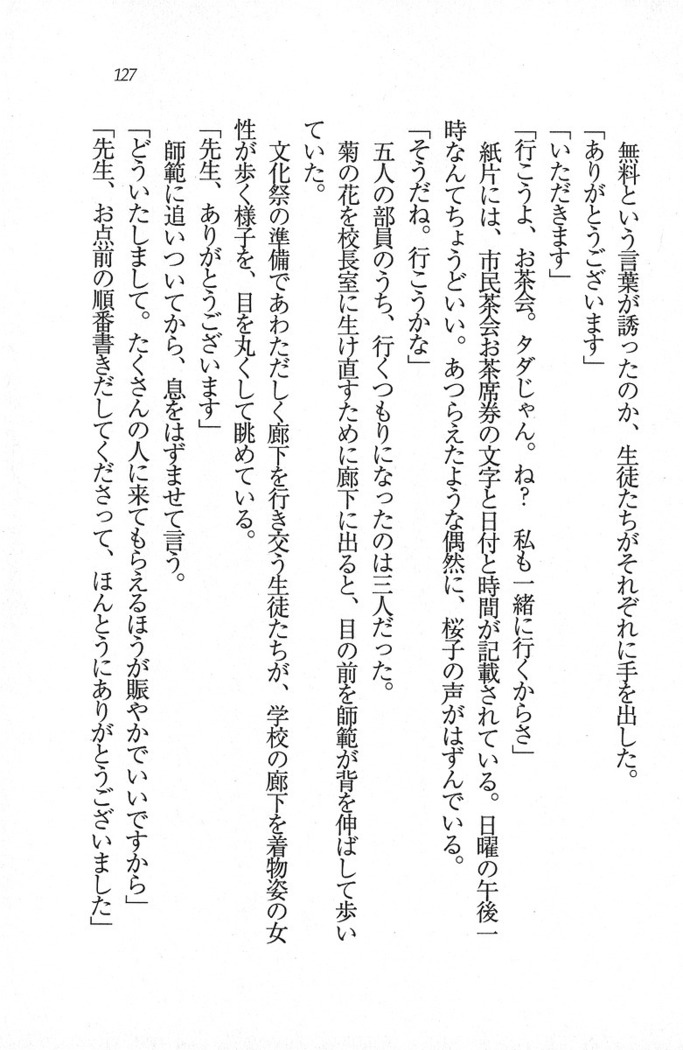 127
　無料という言葉が誘ったのか、生徒たちがそれぞれに手を出した。
「ありがとうございます」
「いただきます」
「行こうよ、お茶会。タダじゃん。ね？　私も一緒に行くからさ」
　紙片には、市民茶会お茶席券の文字と日付と時間が記載されている。日曜の午後一
時なんてちょうどいい。あつらえたような偶然に、桜子の声がはずんでいる。
「そうだね。行こうかな」
　五人の部員のうち、行くつもりになったのは三人だった。
　菊の花を校長室に生け直すために廊下に出ると、目の前を師範が背を伸ばして歩い
ていた。
　文化祭の準備であわただしく廊下を行き交う生徒たちが、学校の廊下を着物姿の女
性が歩く様子を、目を丸くして眺めている。
「先生、ありがとうございます」
　師範に追いついてから、息をはずませて言う。
「どういたしまして。たくさんの人に来てもらえるほうが賑やかでいいですから」
「先生、お点前の順番書きだしてくださって、ほんとうにありがとうございました」